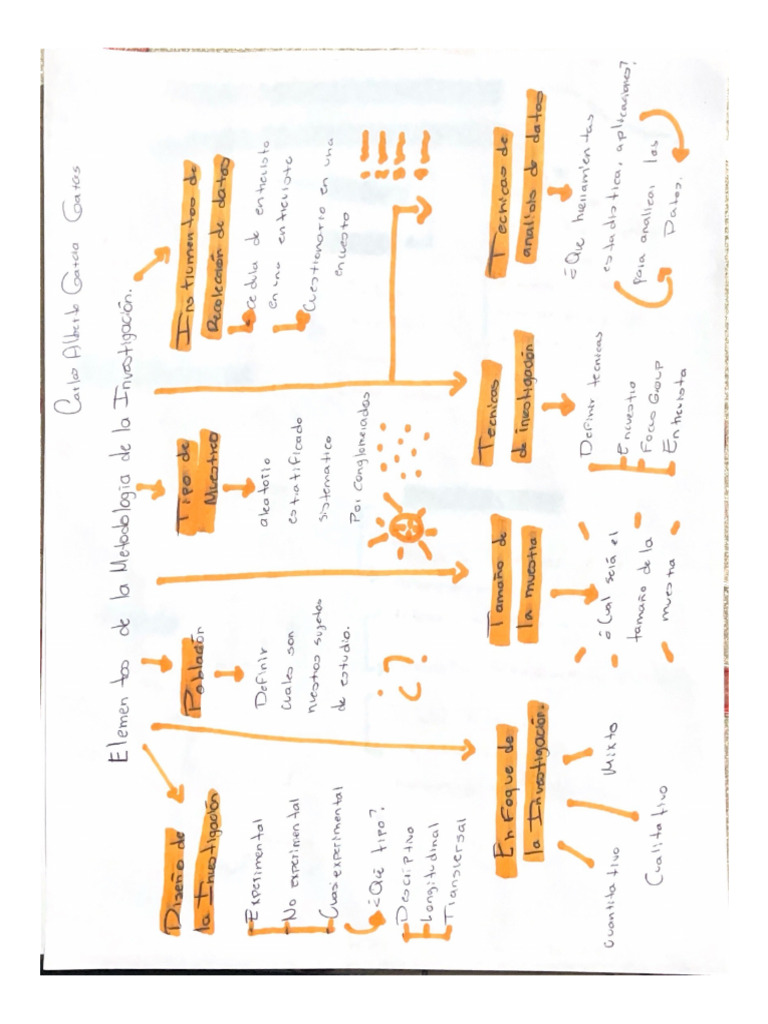 Carlo Alberto Garcia Garcas
Elementos de la Metodologia de la Investigación.
Diseño de
la Investigación
Experimental
No experimental
Cuasi experimental
¿Qué tipo?
Descriptivo
Longitudinal
Transversal
Población
Definir
cuales son
nuestros sujetos
de estudio.
¿?
Tipo de
Muestreo
aleatorio
estratificado
sistematico
Por conglomerados
Instrumentos de
Recolección de datos
cedula de entrevista
en una entrevista
Cuestionario en una
encuesta
Enfoque de
la Investigación
Cuantitativo
Cualitativo
Mixto
Tamaño de
la muestra
¿Cual será el
tamaño de la
muestra
Tecnicas
de investigación
Definir tecnicas
Encuesta
Focus Group
Entrevista
Tecnicas de
analisis de datos
¿Que herramientas
estadisticas, aplicaciones?
para analizar los
Datos.